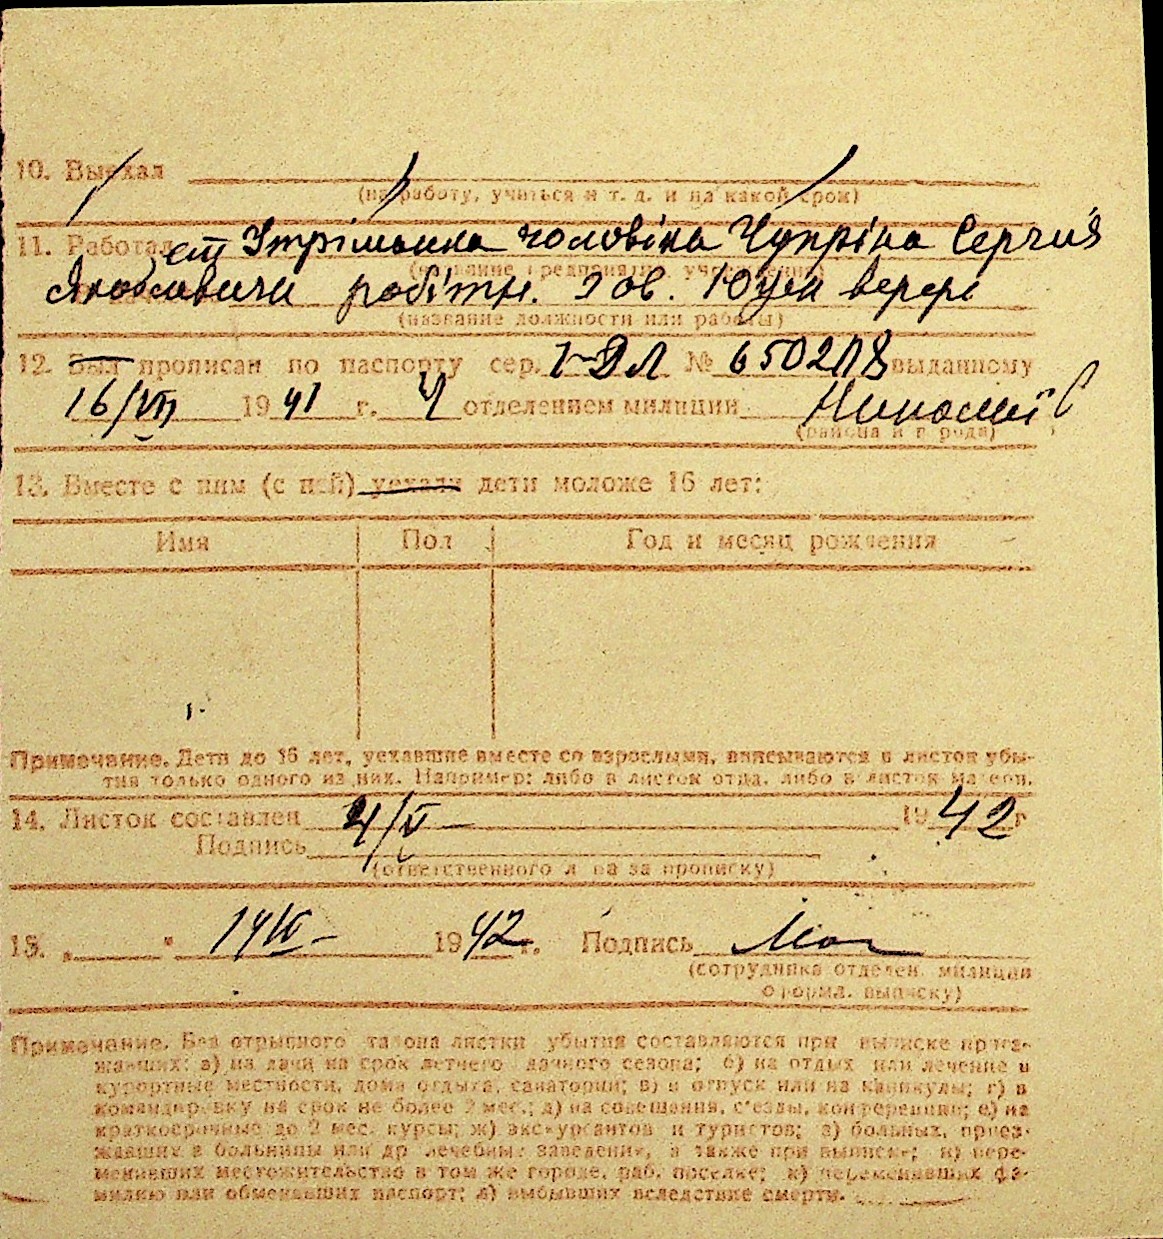 10. Выехал
(на работу, учиться и т. д. и на какой срок)
11. Работает Утріманка чоловіка Чупріна Сергія
(название предприятия, учреждения)
Якововича робітн. зав.
(название должности или работы)
12. Был прописан по паспорту сер. № 650218 выданному
16/VII 1941 г. 4 отделением милиции Николаїв
(района и города)
13. Вместе с ним (с ней) уехали дети моложе 16 лет:
Имя Пол Год и месяц рождения
Примечание. Дети до 16 лет, уехавшие вместе со взрослыми, вписываются в листок убы-
тия только одного из них. Например: либо в листок отца, либо в листок матери.
14. Листок составлен 4/V 1942 г
Подпись
(ответственного лица за прописку)
15. „ " 1942 г. Подпись
(сотрудника отделен. милиции
оформл. выписку)
Примечание. Без отрывного талона листки убытия составляются при выписке приез-
жавших: а) на дачи на срок летнего дачного сезона; б) на отдых или лечение в
курортные местности, дома отдыха, санатории; в) в отпуск или на каникулы; г) в
командировку на срок не более 2 мес.; д) на совещания, съезды, конференции; е) на
краткосрочные до 2 мес. курсы; ж) экскурсантов и туристов; з) больных, приез-
жавших в больницы или др лечебные заведения, а также при выписке; и) пере-
менивших местожительство в том же городе, раб. поселке; к) переменивших фа-
милию или обменявших паспорт; л) выбывших вследствие смерти.